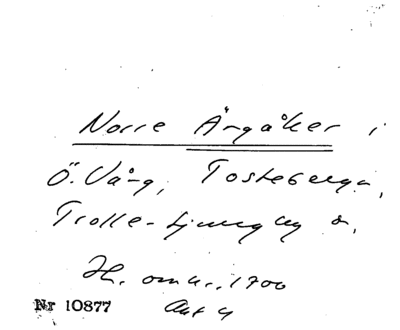 Norre Ärgåker i
Ö. Vång, Tosteberga,
Trolle-Ljungby o.
H. om kr. 1700
Nr 10877